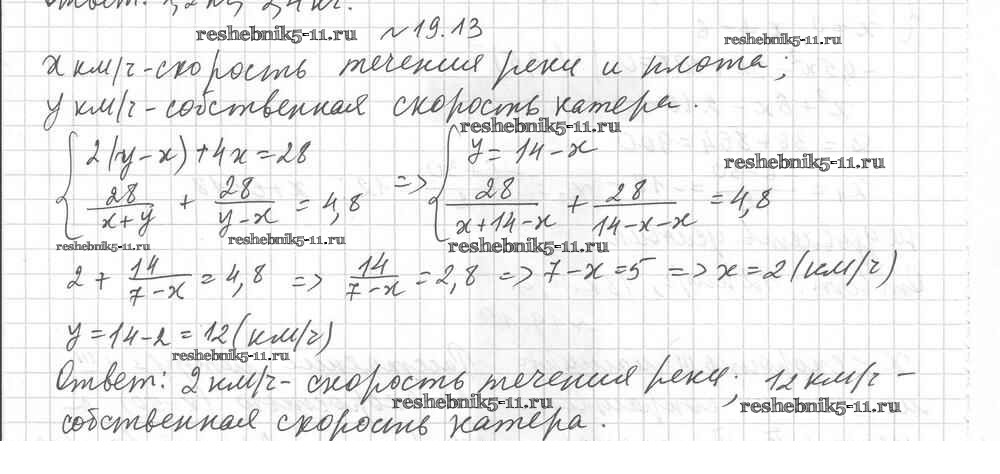 Ответ: 1,2 кг, 2,4 кг.
reshebnik5-11.ru № 19.13 reshebnik5-11.ru
x км/ч - скорость течения реки и плота;
y км/ч - собственная скорость катера.
reshebnik5-11.ru
{ 2(y-x)+4x=28 { y=14-x
reshebnik5-11.ru
28/(x+y) + 28/(y-x) = 4,8 => 28/(x+14-x) + 28/(14-x-x) = 4,8
reshebnik5-11.ru reshebnik5-11.ru reshebnik5-11.ru
2 + 14/(7-x) = 4,8 => 14/(7-x) = 2,8 => 7-x=5 => x=2 (км/ч)
y=14-2=12 (км/ч)
reshebnik5-11.ru
Ответ: 2 км/ч - скорость течения реки; 12 км/ч -
reshebnik5-11.ru reshebnik5-11.ru
собственная скорость катера.